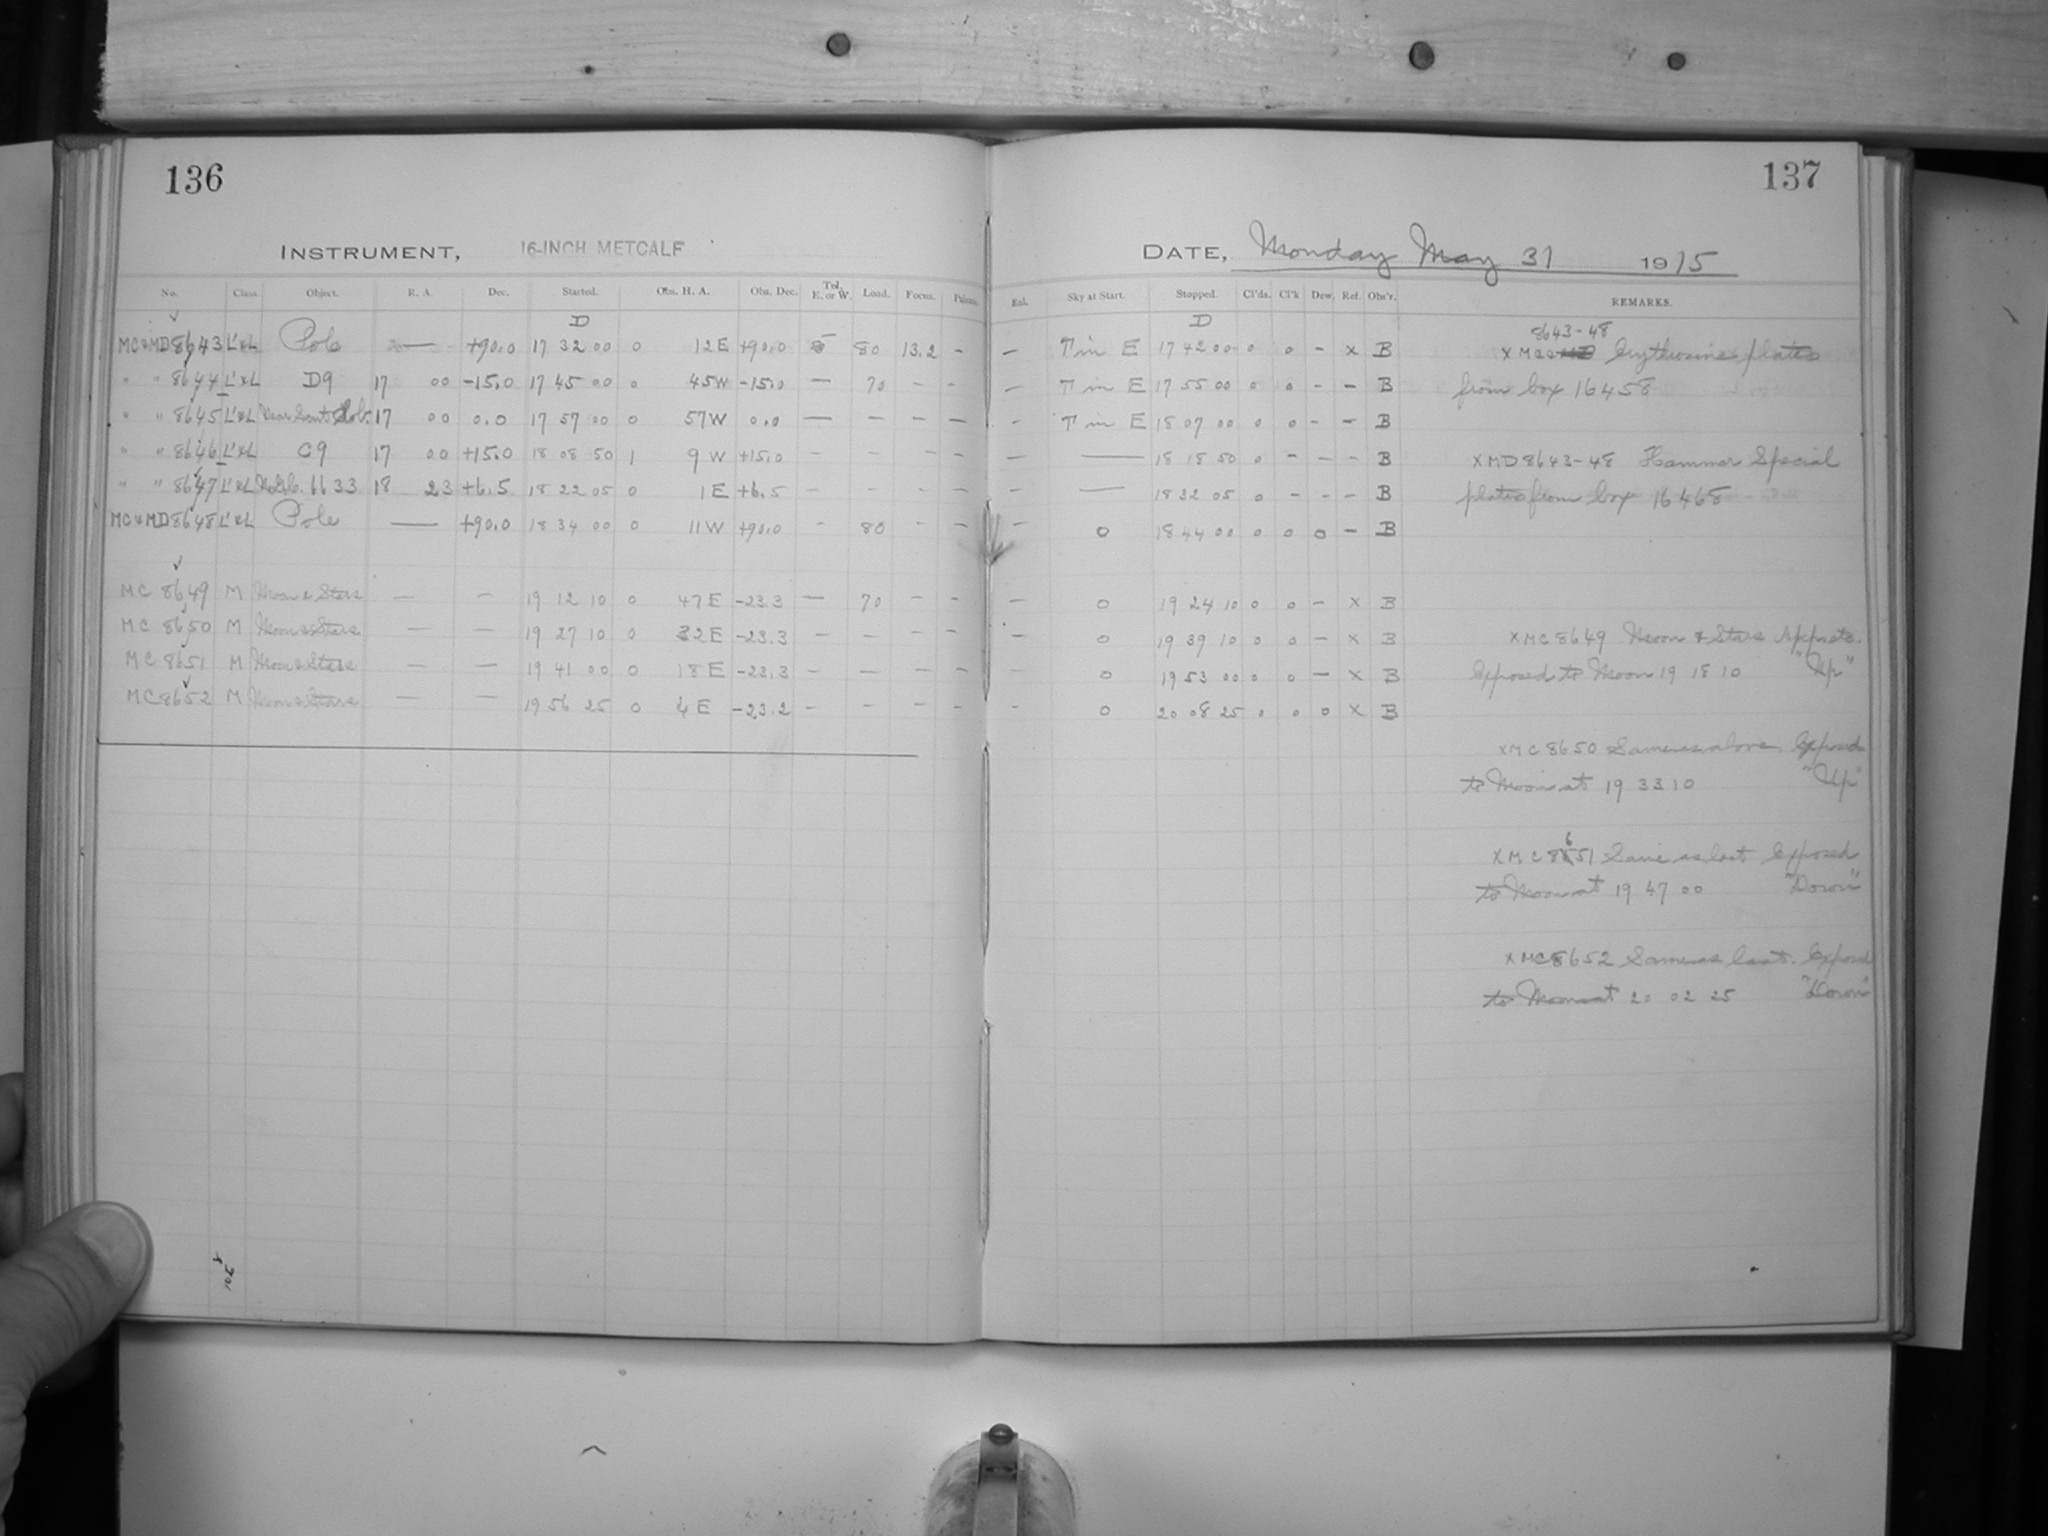 136
INSTRUMENT, 16-INCH METCALF
No. Class. Object. R. A. Dec. Started. Obs. H. A. Obs. Dec. Tel. E. or W. Load. Focus.
D
MC & MD 8643 L'&L Pole — +90.0 17 32 00 0 12 E +90.0 80 13.2 -
" " 8644 L'&L D9 17 00 -15.0 17 45 00 0 45 W -15.0 — 70 - -
" " 8645 L'&L 17 00 0.0 17 57 00 0 57 W 0.0 — - - —
" " 8646 L'&L C9 17 00 +15.0 18 08 50 1 9 W +15.0 - - - -
" " 8647 L'&L 6633 18 23 +6.5 18 22 05 0 1 E +6.5 - - - -
MC & MD 8648 L'&L Pole — +90.0 18 34 00 0 11 W +90.0 - 80 - -
MC 8649 M Moon & Stars — - 19 12 10 0 47 E -23.3 — 70 - -
MC 8650 M Moon & Stars — — 19 27 10 0 32 E -23.3 - - - -
MC 8651 M Moon & Stars — — 19 41 00 0 18 E -23.3 - - - -
MC 8652 M Moon & Stars — — 19 56 25 0 4 E -23.2 - - - -
137
DATE, Monday May 31 1915
Sky at Start. Stopped. Cl'ds. Cl'k Dew. Ref. Obs'r. REMARKS.
D
— T in E 17 42 00 0 0 - x B
— T in E 17 55 00 0 0 - - B
- T in E 18 07 00 0 0 - - B
— — 18 18 50 0 - - - B
- — 18 32 05 0 - - - B
- 0 18 44 00 0 0 0 - B
— 0 19 24 10 0 0 - x B
- 0 19 39 10 0 0 - x B
- 0 19 53 00 0 0 — x B
- 0 20 08 25 0 0 0 x B
8643-48
x MC Erythrosine plates
from box 16458
x MD 8643-48 Hammer Special
plates from box 16468
x MC 8649 Moon & Stars
Exposed to Moon 19 18 10 "Up"
x MC 8650 Same as above Exposed
to Moon at 19 33 10 "Up"
x MC 8651 Same as last Exposed
to Moon at 19 47 00 "Down"
x MC 8652 Same as last. Exposed
to Moon at 20 02 25 "Down"